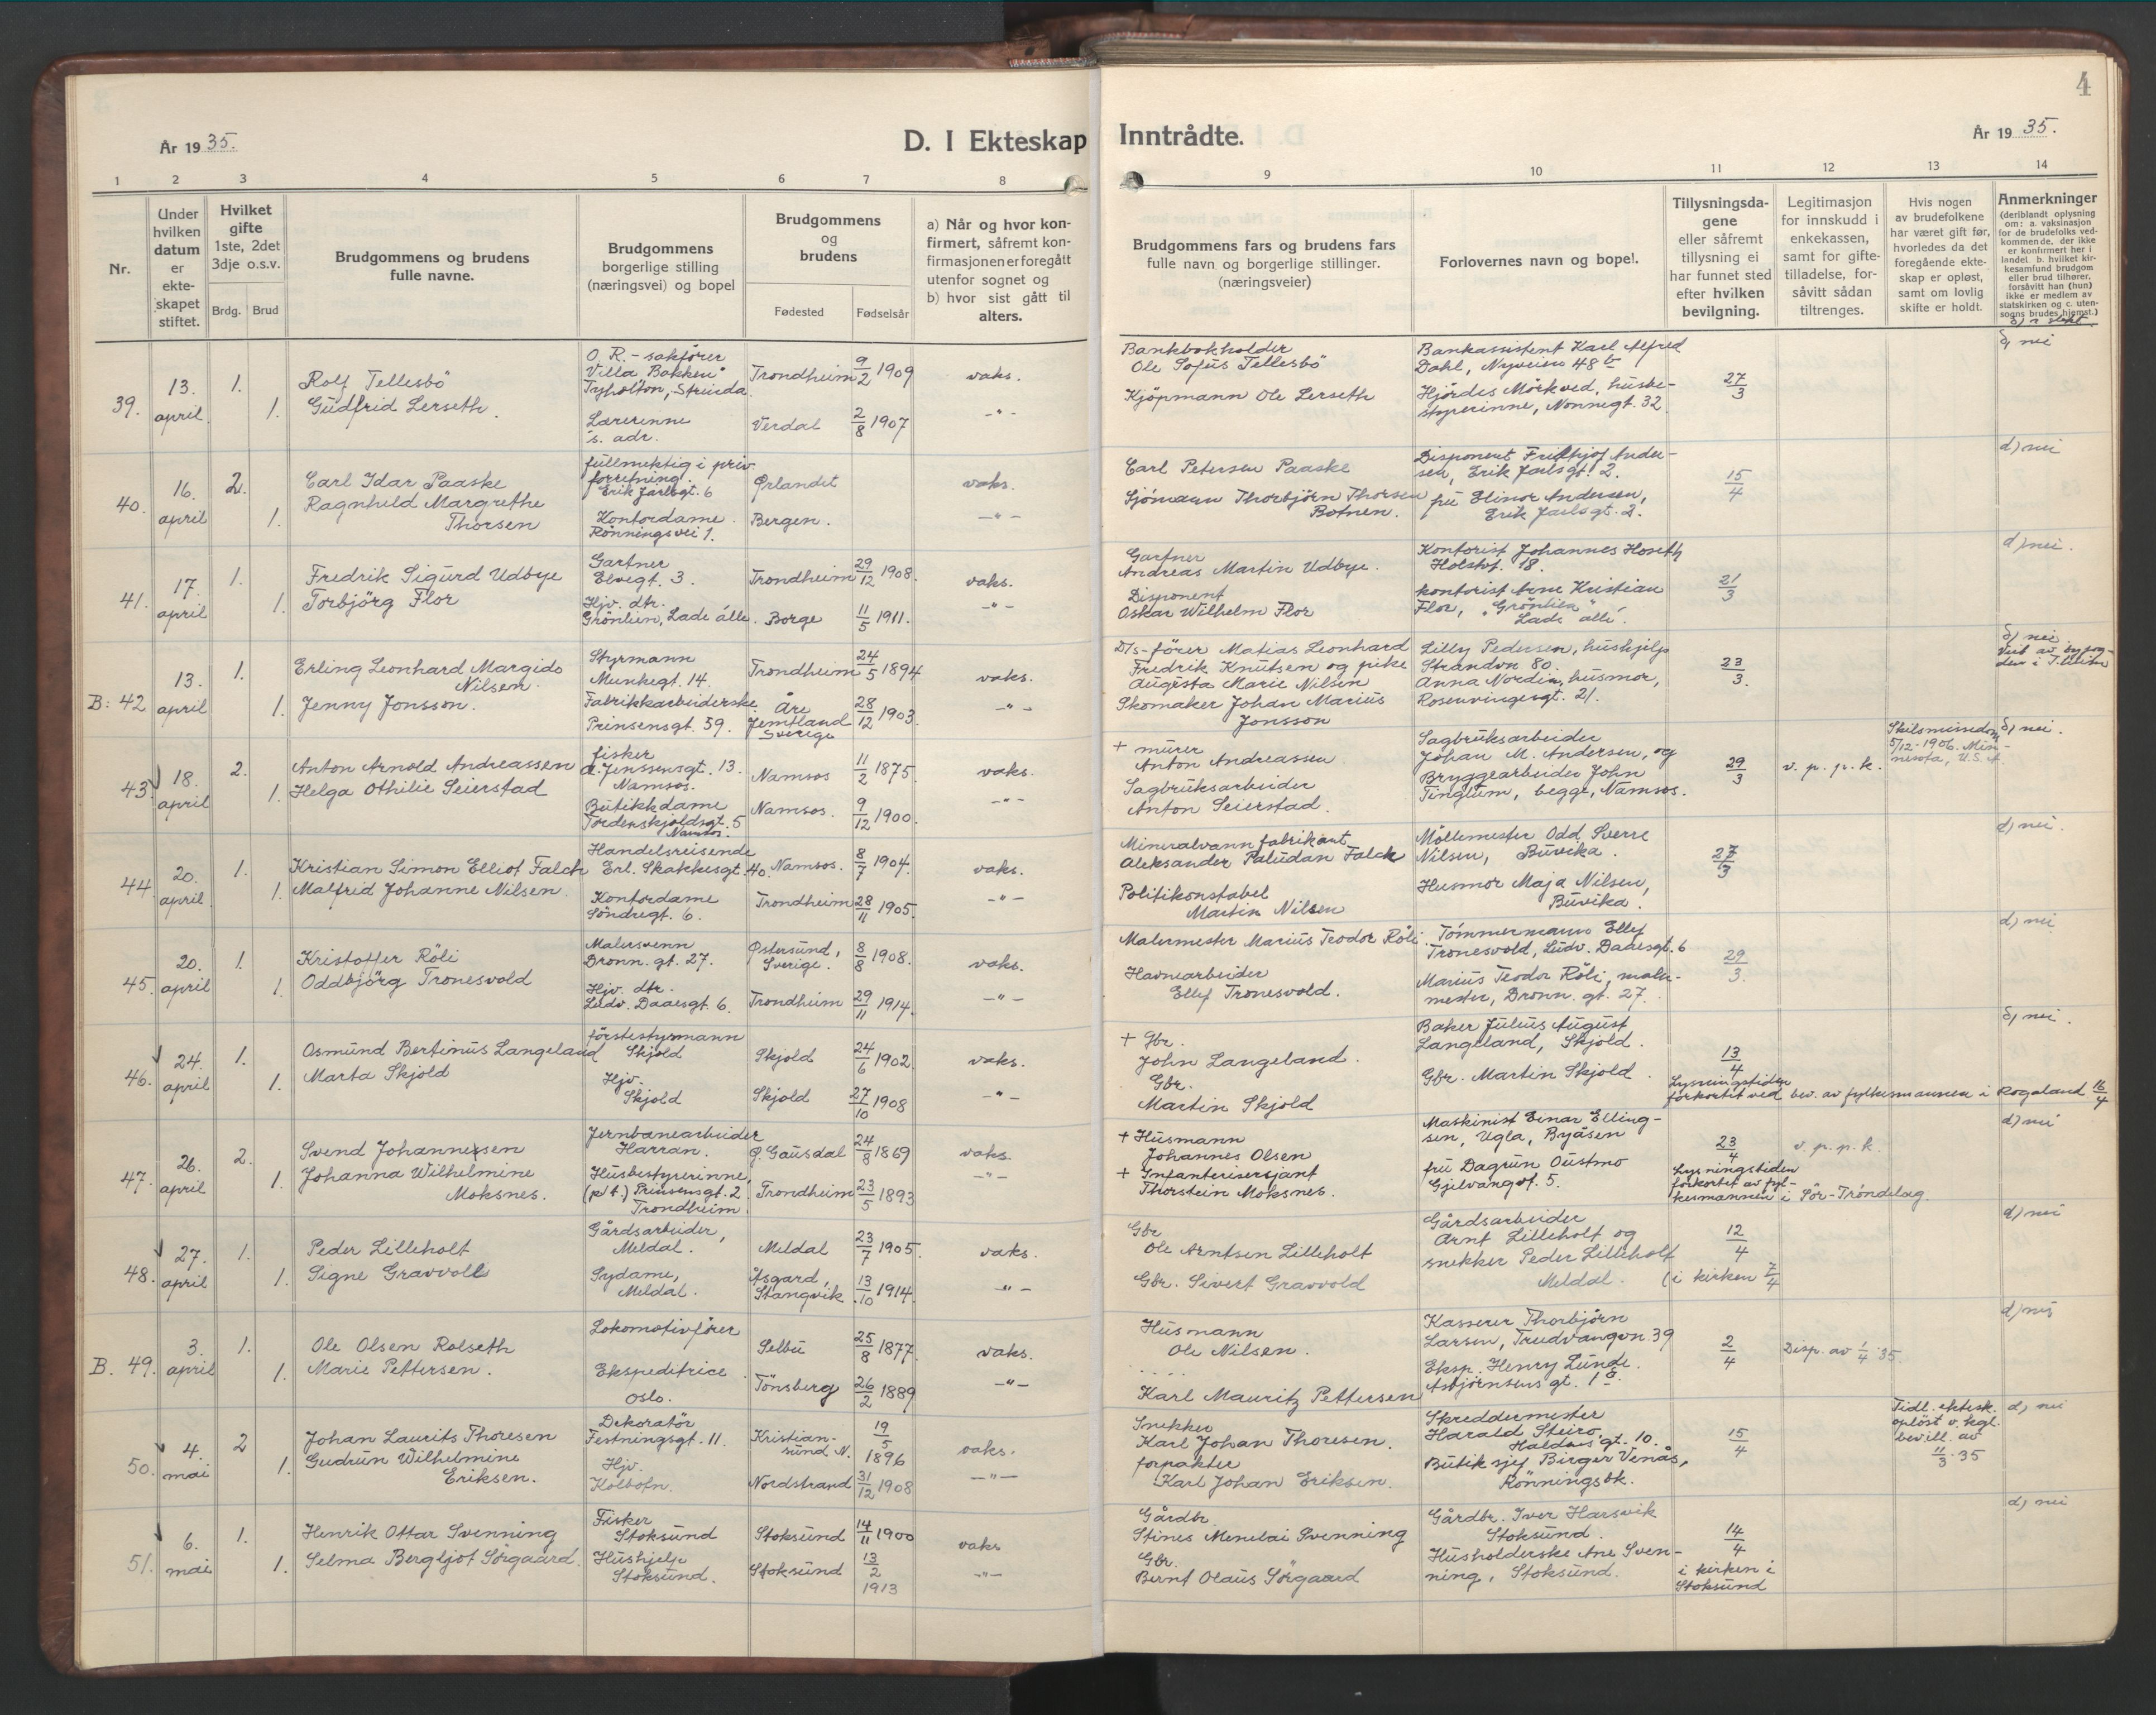 År 1935.
D. I Ekteskap
1 2 3 4 5 6 7 8
Nr.
Under hvilken datum er ekte-skapet stiftet.
Hvilket gifte 1ste, 2det 3dje o.s.v.
Brdg. Brud
Brudgommens og brudens fulle navne.
Brudgommens borgerlige stilling (næringsvei) og bopel
Brudgommens og brudens
Fødested Fødselsår
a) Når og hvor kon-firmert, såfremt kon-firmasjonen er foregått utenfor sognet og b) hvor sist gått til alters.
39. 13. april 1. 1.
Rolf Tellesbö
Gudfrid Lerseth.
O.R.-sakförer
"Villa Bakken"
Tyholtvn, Strinda.
Lærerinne
s. adr.
Trondheim 9/2 1909 vaks.
Verdal 2/8 1907 -"-
40. 16. april 2. 1.
Carl Idar Paaske
Ragnhild Margrethe
Thorsen
fullmektig i priv.
forretning.
Erik Jarlsgt. 6
Kontordame.
Rönningsvei 1.
Ørlandet vaks.
Bergen. -"-
41. 17. april 1. 1.
Fredrik Sigurd Udbye
Torbjörg Flor
Gartner
Elvegt. 3.
Hjv. dtr.
Grönlien, Lade allé.
Trondheim 29/12 1908. vaks.
Borge 11/5 1911. -"-
B: 42 13. april 1. 1.
Erling Leonhard Margido
Nilsen.
Jenny Jonsson.
Styrmann
Munkegt. 14.
Fabrikkarbeiderske
Prinsensgt. 59.
Trondheim 24/5 1894 vaks.
Åre
Jemtland
Sverige 28/12 1903. -"-
43. 18. april 2. 1.
Anton Arnold Andreassen
Helga Othilie Seierstad
fisker
A. Jenssensgt. 13.
Namsos.
Butikkdame
Tordenskjoldsgt. 5
Namsos.
Namsos 11/2 1875. vaks.
Namsos. 9/12 1900. -"-
44. 20. april. 1. 1.
Kristian Simon Elliot Falch
Malfrid Johanne Nilsen.
Handelsreisende
Erl. Skakkesgt. 40.
Kontordame
Söndregt. 6.
Namsos. 8/7 1904. vaks.
Trondheim 28/11 1905. -"-
45. 20. april 1. 1.
Kristoffer Röli
Oddbjörg Tronesvold
Malersvenn
Dronn. gt. 27.
Hjv. dtr.
Ludv. Daaesgt. 6.
Östersund,
Sverige. 8/8 1908. vaks.
Trondheim 29/11 1914. -"-
46. 24. april 1. 1.
Osmund Bertinus Langeland
Marta Skjold
förstestyrmann
Skjold
Hjv.
Skjold
Skjold 24/6 1902 vaks.
Skjold 27/10 1908 -"-
47. 26. april 2. 1.
Svend Johannessen
Johanna Wilhelmine
Moksnes.
Jernbanearbeider
Harran.
Husbestyrerinne,
(p.t.) Prinsensgt. 2
Trondheim.
Ö. Gausdal 24/8 1869 vaks.
Trondheim 23/5 1893 -"-
48. 27. april 1. 1.
Peder Lilleholt
Signe Gravvold
Gårdsarbeider,
Meldal.
Sydame,
Meldal.
Meldal 23/7 1905. vaks.
Åsgard,
Stangvik 13/10 1914. -"-
B. 49. 3. april 1. 1.
Ole Olsen Rolseth
Marie Pettersen.
Lokomotivförer
Ekspeditrice
Oslo.
Selbu 25/8 1877. vaks.
Tönsberg 26/2 1889 -"-
50. 4. mai 2 1.
Johan Laurits Thoresen
Gudrun Wilhelmine
Eriksen.
Dekoratör
Festningsgt. 11.
Hjv.
Kolbotn.
Kristian-
sund N. 19/5 1896 vaks.
Nordstrand 31/12 1908 -"-
51. 6. mai 1. 1.
Henrik Ottar Svenning
Selma Bergljot Sörgaard.
Fisker
Stoksund
Hushjelp
Stoksund.
Stoksund 14/11 1900 vaks
Stoksund 13/2 1913 -"-
4
Inntrådte.
År 1935.
9 10 11 12 13 14
Brudgommens fars og brudens fars fulle navn og borgerlige stillinger. (næringsveier)
Forlovernes navn og bopel.
Tillysningsda-gene eller såfremt tillysning ei har funnet sted efter hvilken bevilgning.
Legitimasjon for innskudd i enkekassen, samt for gifte-tilladelse, for-såvitt sådan tiltrenges.
Hvis nogen av brudefolkene har været gift før, hvorledes da det foregående ekte-skap er opløst, samt om lovlig skifte er holdt.
Anmerkninger (deriblandt oplysning om: a. vaksinasjon for de brudefolks ved-kommende, der ikke er konfirmert her i landet b. hvilket kir-kesamfund brudgom eller brud tilhører, forsåvitt han (hun) ikke er medlem av statskirken og c. uten-sogns brudes hjemst.)
Bankbokholder
Ole Sofus Tellesbö
Kjöpmann Ole Lerseth
Bankassistent Karl Alfred
Dahl, Nyveien 48b
Hjördis Mörkved, husbe-
styrerinne, Nonnegt. 32.
27/3
d) nei
Carl Petersen Paaske
Sjömann Thorbjörn Thorsen
Botnen.
Disponent Fridtjof Ander-
sen, Erik Jarlsgt. 2.
fru Elinor Andersen,
Erik Jarlsgt. 2.
15/4
d) nei
Gartner
Andreas Martin Udbye.
Disponent
Oskar Wilhelm Flor
Kontorist Johannes Hoseth
Holstvt. 18.
kontorist Arne Kristian
Flor, "Grönlien"
Lade allé.
21/3
d) nei.
D/s-förer Matias Leonhard
Fredrik Knutsen og pike
Augusta Marie Nilsen
Skomaker Johan Marius
Jonsson
Lilly Pedersen, hushjelp
Strandvn 80.
Anna Nordin, husmor,
Rosenvingesgt. 21.
23/3.
d) nei
+ murer
Anton Andreassen
Sagbruksarbeider
Anton Seierstad.
Sagbruksarbeider
Johan M. Andersen, og
Bryggearbeider John
Tinglum, begge, Namsos.
29/3
v. p. p. k.
Skilsmissedom
5/12-1906. Min-
nesota, U.S.A.
d) nei.
Mineralvannfabrikant
Aleksander Paludan Falch
Politikonstabel
Martin Nilsen
Möllemester Odd Sverre
Nilsen, Buvika.
Husmor Maja Nilsen,
Buvika.
27/3
d) nei.
Malermester Marius Teodor Röli.
Havnearbeider
Ellef Tronesvold.
Tömmermann Ellef
Tronesvold, Ludv. Daaesgt. 6
Marius Teodor Röli, maler-
mester, Dronn. gt. 27.
29/3.
d) nei
+ Gbr.
John Langeland.
Gbr.
Martin Skjold
Baker Julius August
Langeland, Skjold.
Gbr. Martin Skjold.
13/4
Lysningstiden
forkortet ved bev. av fylkesmannen i Rogaland 16/4
d) nei.
+ Husmann
Johannes Olsen
+ Infanterisersjant
Thorstein Moksnes.
Maskinist Einar Elling-
sen, Ugla, Byåsen
fru Dagrun Oustmo
Gjelvangvt. 5.
23/4
Lysningstiden
forkortet av fyl-
kesmannen i Sör-Tröndelag.
v. p. p. k.
d) nei
Gbr.
Ole Arntsen Lilleholt
Gbr. Sivert Gravvold
Gårdsarbeider
Arnt Lilleholt og
snekker Peder Lilleholt
Meldal.
12/4
(i kirken 7/4
d) nei
Husmann
Ole Nilsen.
Karl Mauritz Pettersen
Kasserer Thorbjörn
Larsen, Trudvangvn. 39
Eksp. Henry Lunde.
Asbjörnsens gt. 1a.
2/4
Disp. av 1/4 35
d) nei
Snekker
Karl Johan Thoresen.
forpakter
Karl Johan Eriksen.
Skreddermester
Harald Steiro,
gt. 10.
Butiksjef Birger Venås,
Rönningsbk.
15/4
Tidl. ektesk.
oplöst v. kgl.
bevill. av
11/3-35
d) nei
Gårdbr.
Stines Menelai Svenning
Gbr.
Bernt Olaus Sörgaard
Gårdbr. Iver Harsvik
Stoksund.
Husholderske Ane Sven-
ning, Stoksund.
14/4
i kirken i
Stoksund
d) nei